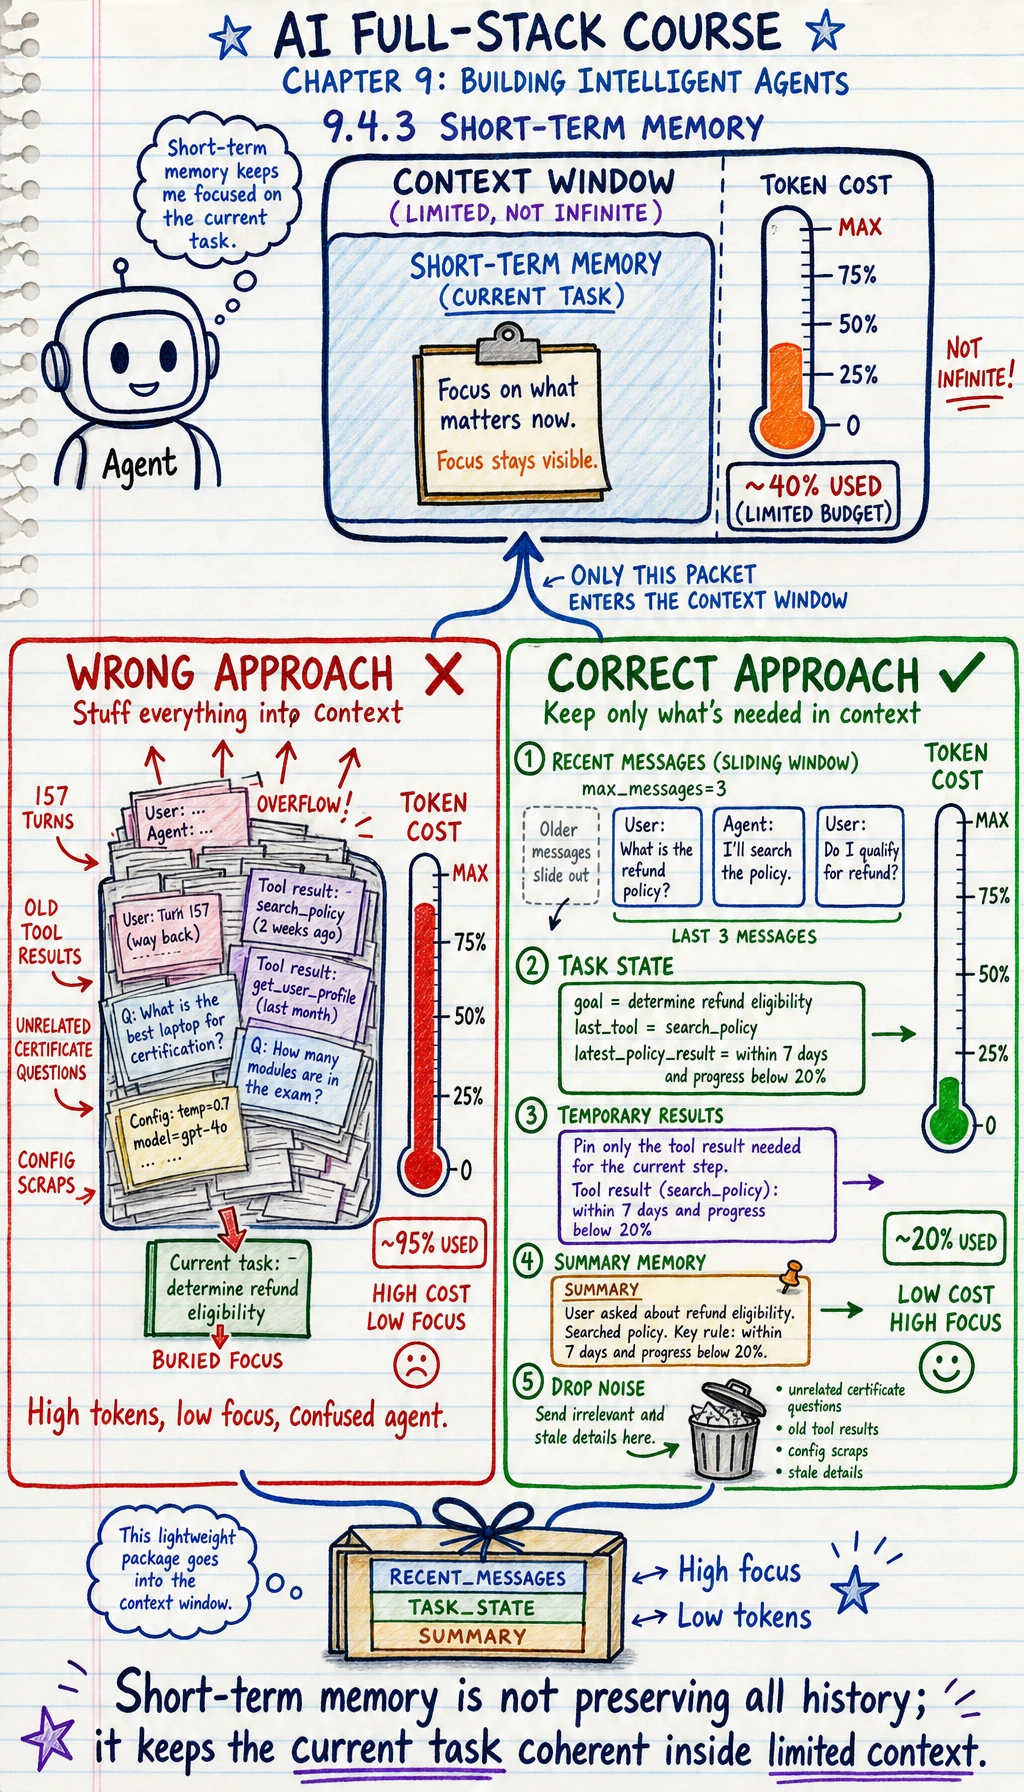 AI FULL-STACK COURSE
CHAPTER 9: BUILDING INTELLIGENT AGENTS
9.4.3 SHORT-TERM MEMORY
Short-term
memory keeps
me focused on
the current
task.
Agent
CONTEXT WINDOW
(LIMITED, NOT INFINITE)
SHORT-TERM MEMORY
(CURRENT TASK)
Focus on what
matters now.
Focus stays visible.
TOKEN COST
MAX
75%
50%
25%
0
~40% USED
(LIMITED BUDGET)
NOT
INFINITE!
ONLY THIS PACKET
ENTERS THE CONTEXT WINDOW
WRONG APPROACH
Stuff everything into Context
157
TURNS
OLD
TOOL
RESULTS
UNRELATED
CERTIFICATE
QUESTIONS
CONFIG
SCRAPS
OVERFLOW!
User: ...
Agent: ...
User: Turn 157
(way back)
Tool result:
search_policy
(2 weeks ago)
Tool result:
get_user_profile
(last month)
Q: What is the
best laptop for
certification?
Q: How many
modules are in
the exam?
Config: temp=0.7
model=gpt-4o
... ...
TOKEN
COST
MAX
75%
50%
25%
0
Current task:
determine refund
eligibility
BURIED FOCUS
~95% USED
HIGH COST
LOW FOCUS
High tokens, low focus, confused agent.
CORRECT APPROACH
Keep only what's needed in context
1 RECENT MESSAGES (SLIDING WINDOW)
max_messages=3
Older
messages
slide out
User:
What is the
refund
policy?
Agent:
I'll search
the policy.
User:
Do I qualify
for refund?
LAST 3 MESSAGES
2 TASK STATE
goal = determine refund eligibility
last_tool = search_policy
latest_policy_result = within 7 days
and progress below 20%
3 TEMPORARY RESULTS
Pin only the tool result needed
for the current step.
Tool result (search_policy):
within 7 days and progress
below 20%
4 SUMMARY MEMORY
SUMMARY
User asked about refund eligibility.
Searched policy. Key rule: within
7 days and progress below 20%.
5 DROP NOISE
Send irrelevant and
stale details here.
• unrelated certificate
questions
• old tool results
• config scraps
• stale details
TOKEN
COST
MAX
75%
50%
25%
0
~20% USED
LOW COST
HIGH FOCUS
This lightweight
package goes
into the
context window.
RECENT_MESSAGES
TASK_STATE
SUMMARY
High focus
Low tokens
Short-term memory is not preserving all history;
it keeps the current task coherent inside limited context.